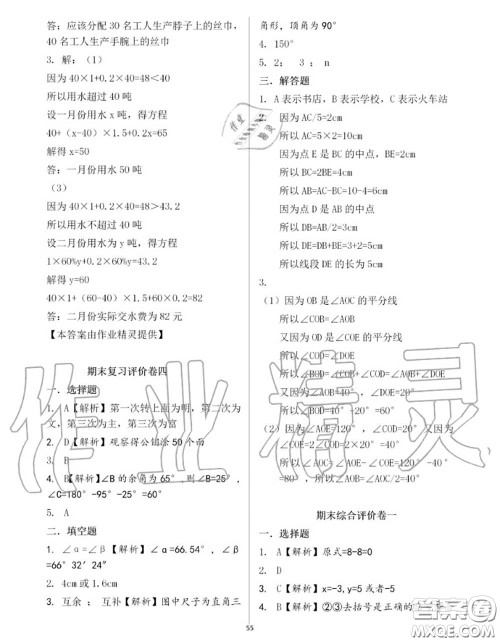 答：应该分配 30 名工人生产脖子上的丝巾，
40 名工人生产手腕上的丝巾
3. 解：（1）
因为 40×1+0.2×40=48<40
所以用水超过 40 吨
设一月份用水 x 吨，得方程
40+（x-40）×1.5+0.2x=65
解得 x=50
答：一月份用水 50 吨
（3）
因为 40×1+0.2×40=48>43.2
所以用水不超过 40 吨
设二月份用水为 y 吨，得方程
1×60%y+0.2×60%y=43.2
解得 y=60
40×1+（60-40）×1.5+0.2×60=82
答：二月份实际交水费为 82 元
【本答案由作业精灵提供】
期末复习评价卷四
一、选择题
1. A【解析】第一次转上面为明，第二次为
文，第三次为主，第三次为家
2. D【解析】观察得公钼涂 50 个面
3. B
4. B【解析】∠B 的余角为 65°，则∠B=25°，
∠C=180°-95°-25°=60°
5. A
二、填空题
1. ∠α=∠β【解析】∠α=66.54°，∠β
=66°32′24″
2. 4cm 或 1.6cm
3. 互余； 互补【解析】图中尺子为直角三
角形，顶角为 90°
4. 150°
5. 2； 3； n
三、解答题
1. A 表示书店，B 表示学校，C 表示火车站
2. 因为 AC/5=2cm
所以 AC=5×2=10cm
因为点 E 是 BC 的中点，BE=2cm
所以 BC=2BE=4cm
所以 AB=AC-BC=10-4=6cm
因为点 D 是 AB 的中点
所以 DB=AB/2=3cm
所以 DE=DB+BE=3+2=5cm
所以线段 DE 的长为 5cm
3.
（1）因为 OB 是∠AOC 的平分线
所以∠COB=∠AOB
又因为 OD 是∠COE 的平分线
所以∠COD=∠DOE
所以∠BOD=∠COB+∠COD=∠AOB+∠DOE
=40°+20°=60°
（2）因为∠AOE=120°，∠COD=20° 又因为
∠COE=2∠COD=2×20°=40°
所以∠AOC=∠AOE-∠COE=120°-40°
=80°，所以∠COB=∠AOC/2=40°
期末综合评价卷一
一、选择题
1. A【解析】原式=8-8=0
2. D
3. C【解析】x=-3,y=5 或者-5
4. B【解析】②③去括号是正确的
55
作业精灵
答案圈
MXQE.COM